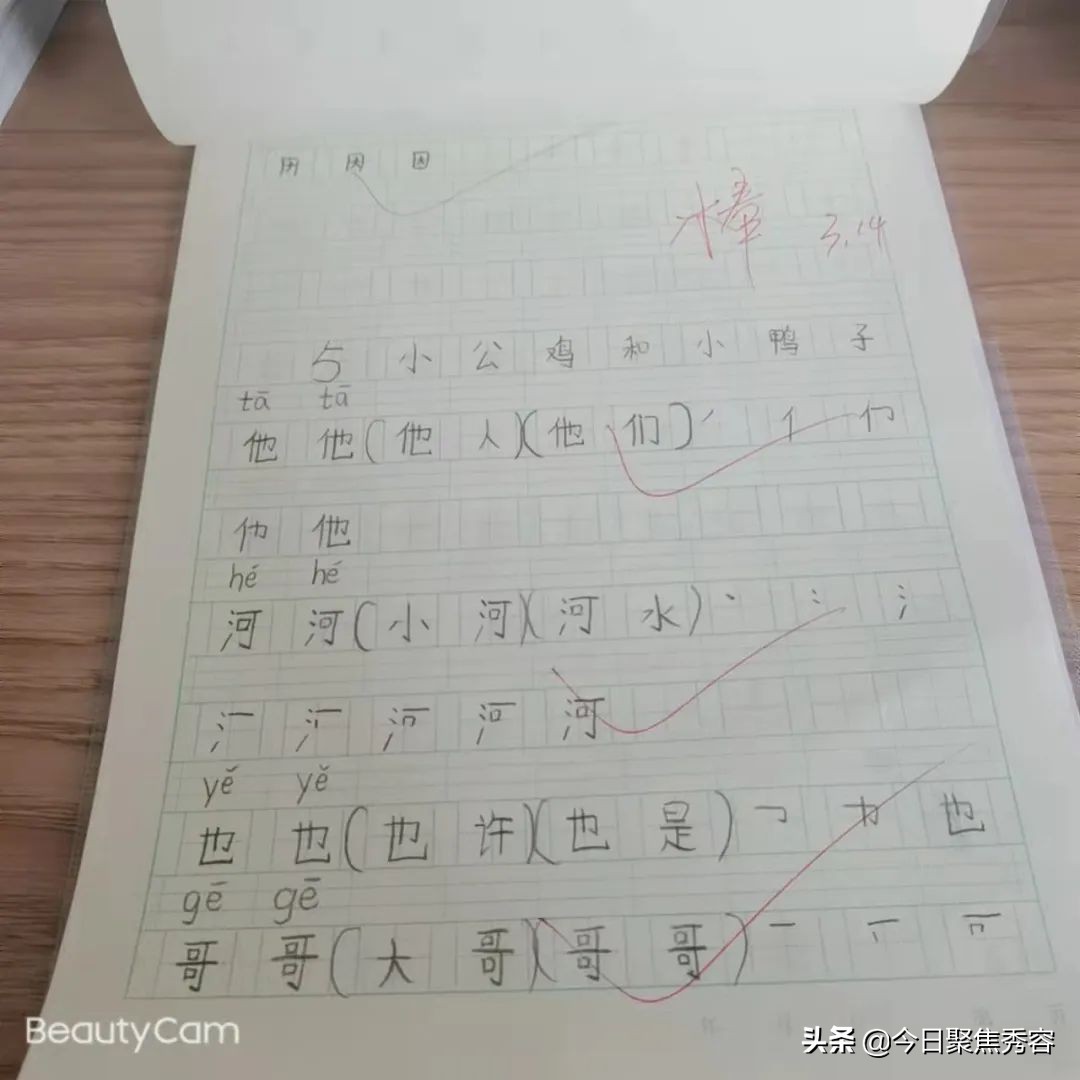 因
棒 3.14
5 小公鸡和小鸭子
tā tā
他 他(他人)(他们)丿 亻 们
他 他
hé hé
河 河(小河)(河水)丶 冫 氵
河
yě yě
也 也(也许)(也是)㇆ 也
gē gē
哥 哥(大哥)(哥哥)一 丅
BeautyCam
头条 @今日聚焦秀容